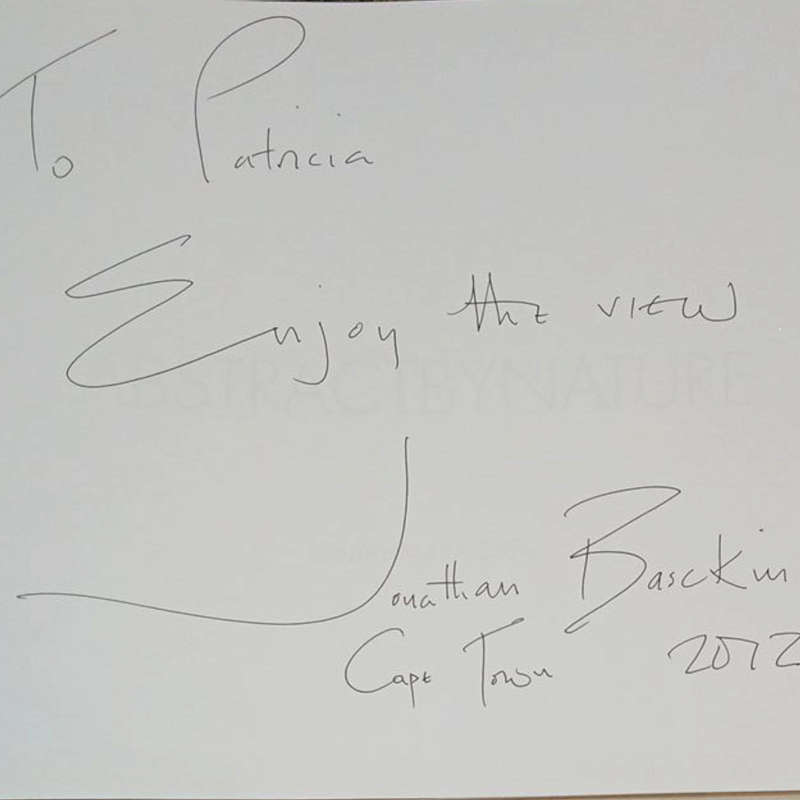 To Patricia
Enjoy the view
ABSTRACTBYNATURE
Jonathan Basckin
Cape Town 2012